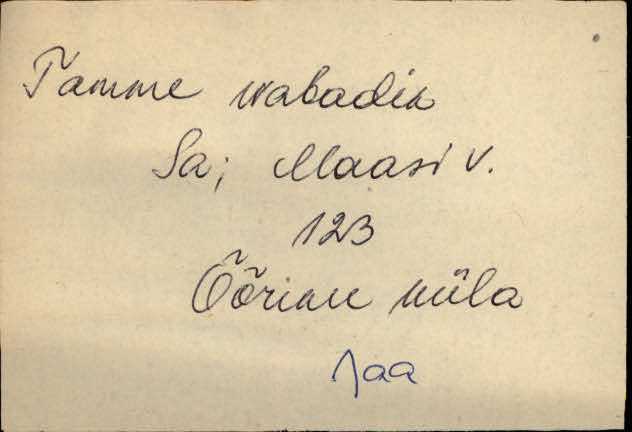 Tamme wabadik
Sa; Maasi v.
123
Õõrimu küla
Jaa